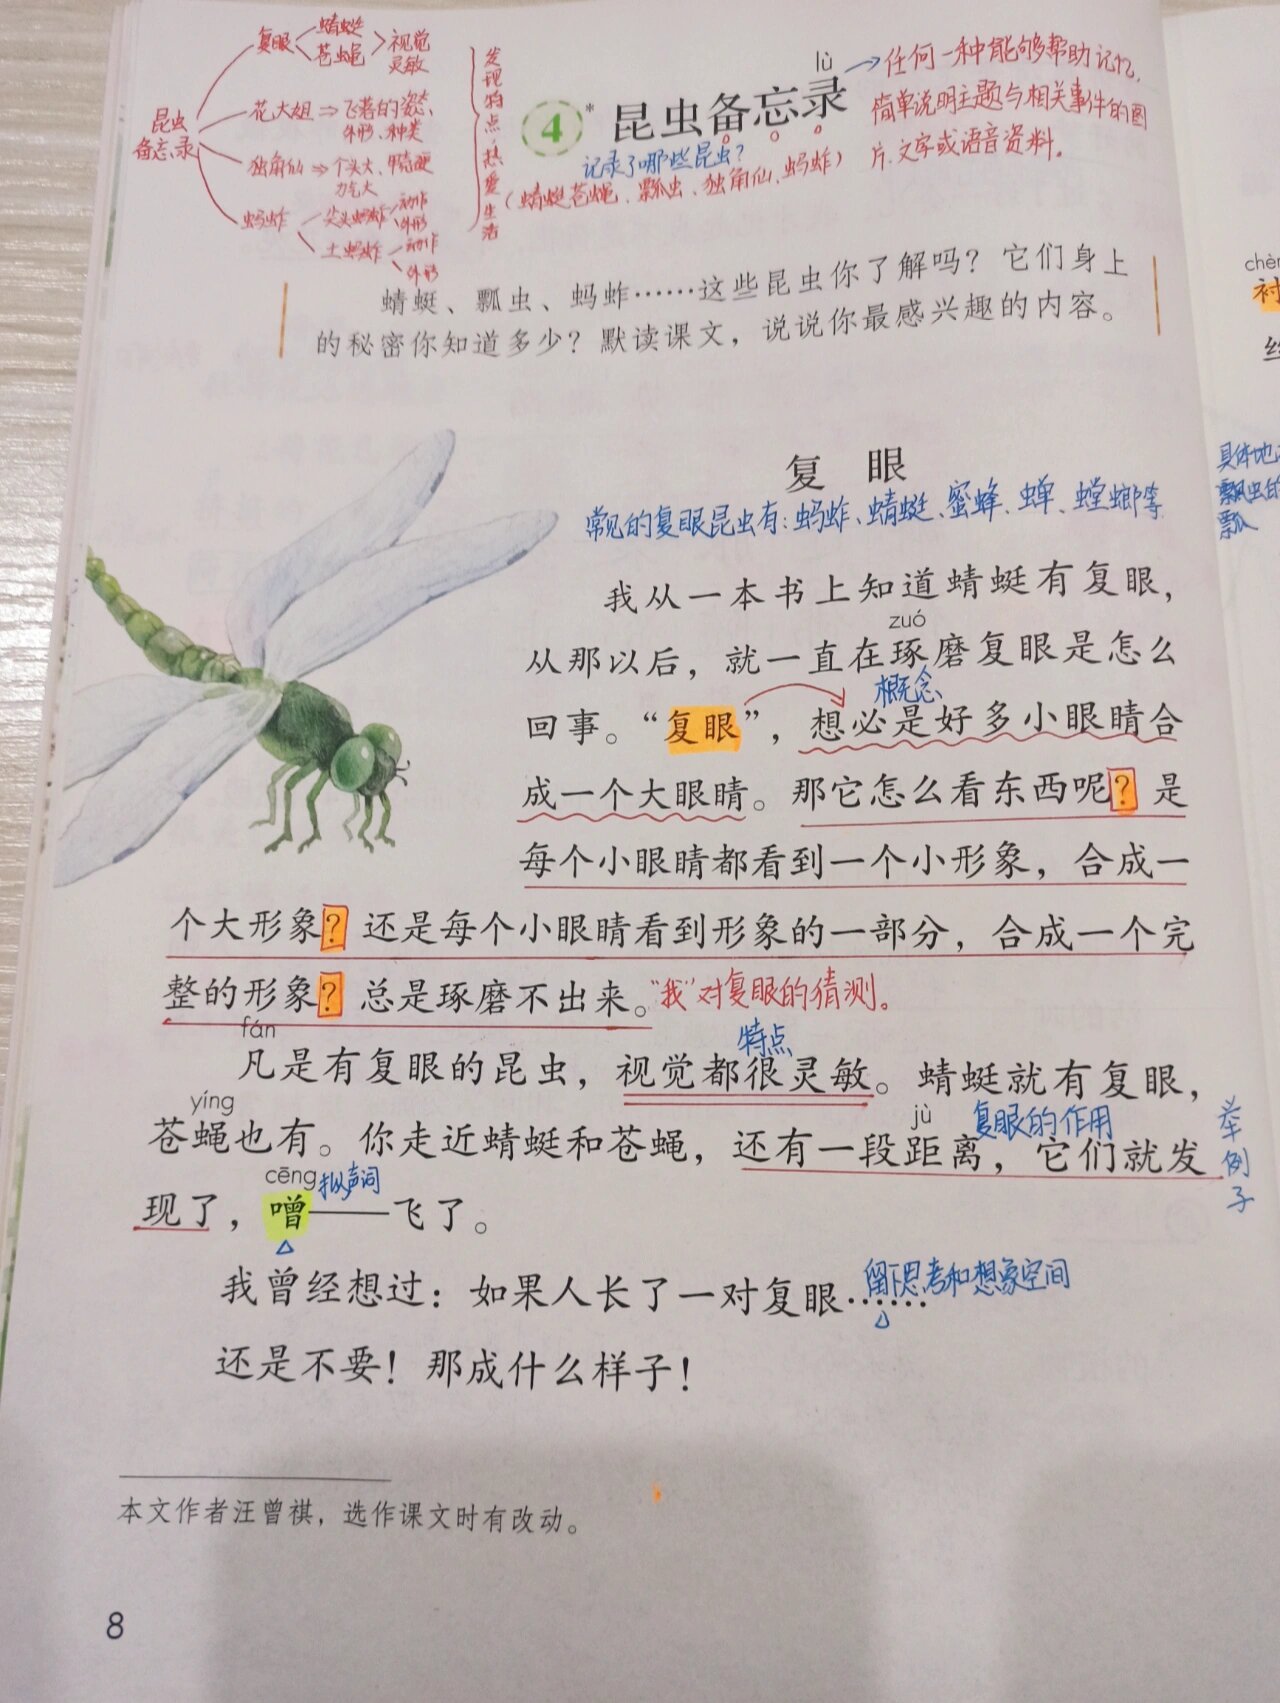 复眼
蜻蜓
苍蝇
视觉
灵敏
昆虫
备忘录
花大姐⇒飞落的姿态、
外形、种类
独角仙⇒个头大、甲壳硬
力气大
蚂蚱
尖头蚂蚱
动作
外形
土蚂蚱
动作
外形
发现特点,热爱生活
lù
4 * 昆虫备忘录
→任何一种能够帮助记忆,
简单说明主题与相关事件的图
片、文字或语音资料。
记录了哪些昆虫?
(蜻蜓苍蝇、瓢虫、独角仙、蚂蚱)
蜻蜓、瓢虫、蚂蚱……这些昆虫你了解吗？它们身上
的秘密你知道多少？默读课文，说说你最感兴趣的内容。
复 眼
常见的复眼昆虫有:蚂蚱、蜻蜓、蜜蜂、蝉、螳螂等
我从一本书上知道蜻蜓有复眼，
zuó
从那以后，就一直在琢磨复眼是怎么
概念
回事。“复眼”，想必是好多小眼睛合
成一个大眼睛。那它怎么看东西呢？是
每个小眼睛都看到一个小形象，合成一
个大形象？还是每个小眼睛看到形象的一部分，合成一个完
整的形象？总是琢磨不出来。“我”对复眼的猜测。
fán
特点
凡是有复眼的昆虫，视觉都很灵敏。蜻蜓就有复眼，
yíng
jù
复眼的作用
苍蝇也有。你走近蜻蜓和苍蝇，还有一段距离，它们就发
举例子
cēng
拟声词
现了，噌——飞了。
留下思考和想象空间
我曾经想过：如果人长了一对复眼……
还是不要！那成什么样子！
本文作者汪曾祺，选作课文时有改动。
8
chèn
衬
具体地
瓢虫的
瓢